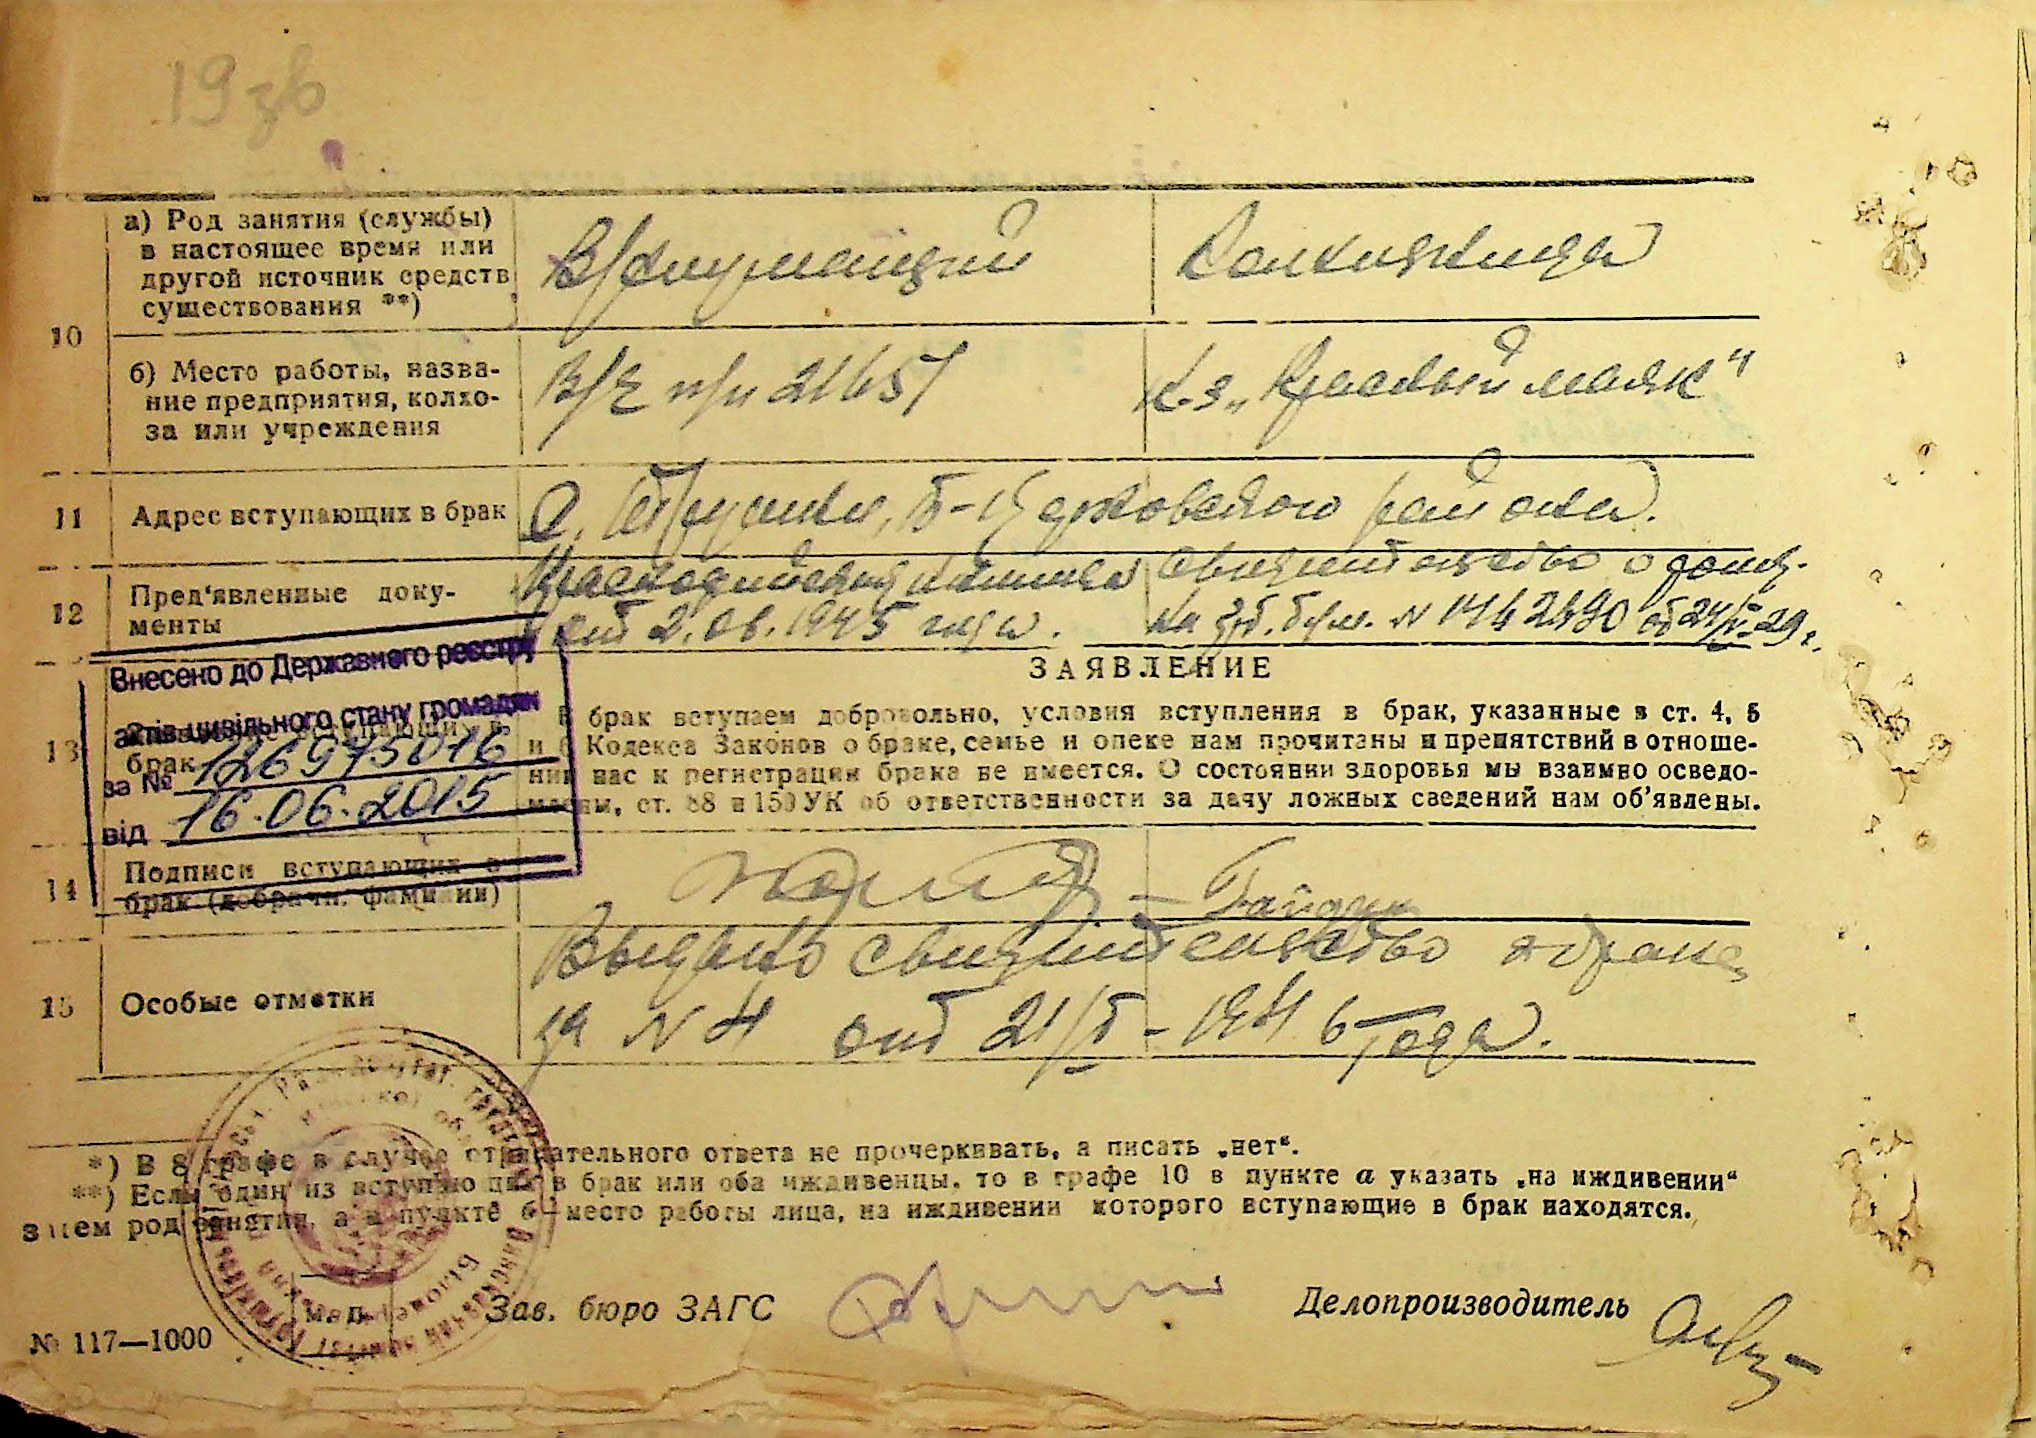 19 зв
а) Род занятия (службы)
в настоящее время или
другой источник средств
существования **)
В/служащий
Колхозница
10
б) Место работы, назва-
ние предприятия, колхо-
за или учреждения
В/Ч п/п 21657
К-з „Красный маяк"
11
Адрес вступающих в брак
с. Трушки, Б-Церковского района.
12
Пред'явленные доку-
менты
Красноармейская книжка
от 2.06.1945 года.
Свидетельство о рожд.
на гб. бум. №
ЗАЯВЛЕНИЕ
Внесено до Державного реєстру
актів цивільного стану громадян
за № 126975016
від 16.06.2015
13
вступающи в
брак
В брак вступаем добровольно, условия вступления в брак, указанные в ст. 4, 5
и 6 Кодекса Законов о браке, семье и опеке нам прочитаны и препятствий в отноше-
нии нас к регистрации брака не имеется. О состоянии здоровья мы взаимно осведо-
млены, ст. 88 и 150 УК об ответственности за дачу ложных сведений нам об'явлены.
14
Подписи вступающих в
брак (добрачн. фамилии)
Гайдук
15
Особые отметки
Выдано свидетельство о браке
за № 4 от 21/V - 1946 года.
*) В 8 графе в случае отрицательного ответа не прочеркивать, а писать „нет".
**) Если один из вступающих в брак или оба иждивенцы, то в графе 10 в пункте а указать „на иждивении"
затем род занятия, а в пункте б—место работы лица, на иждивении которого вступающие в брак находятся.
М. П.
Зав. бюро ЗАГС
Делопроизводитель
№ 117—1000